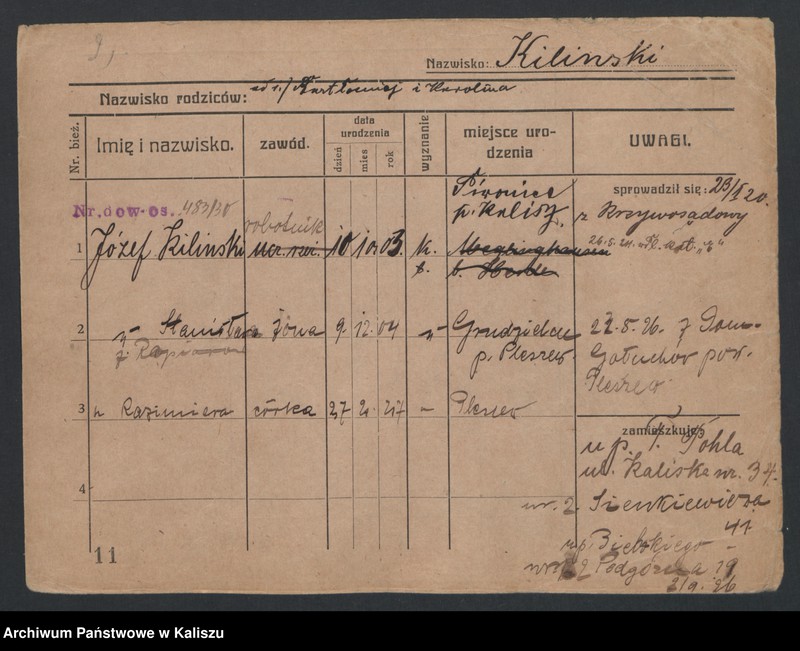 Nazwisko: Kilinski
Nazwisko rodziców: Bartłomiej i Karolina
Nr. bież.
Imię i nazwisko.
zawód.
data urodzenia
dzień
mies
rok
wyznanie
miejsce urodzenia
UWAGI.
Nr. dow-os. 483/30
sprowadził się: 23/I 20.
1
Józef Kilinski
robotnik
10 10 03.
k.
p. Kalisz
z Krzywosądowy
2
" Stanisława żona 9 12 04 "
p. Pleszew
22-5-26. z Dom-
Gołuchów pow.
Pleszew
3
" Kazimiera córka 27 2. 27 - Pleszew
zamieszkuje
u p. T. Tohla
ul. Kaliska nr. 34.
4
ur. 2. Sienkiewicza
41
u p. Bielskiego -
Podgórna 19
2/9. 26
11
Archiwum Państwowe w Kaliszu